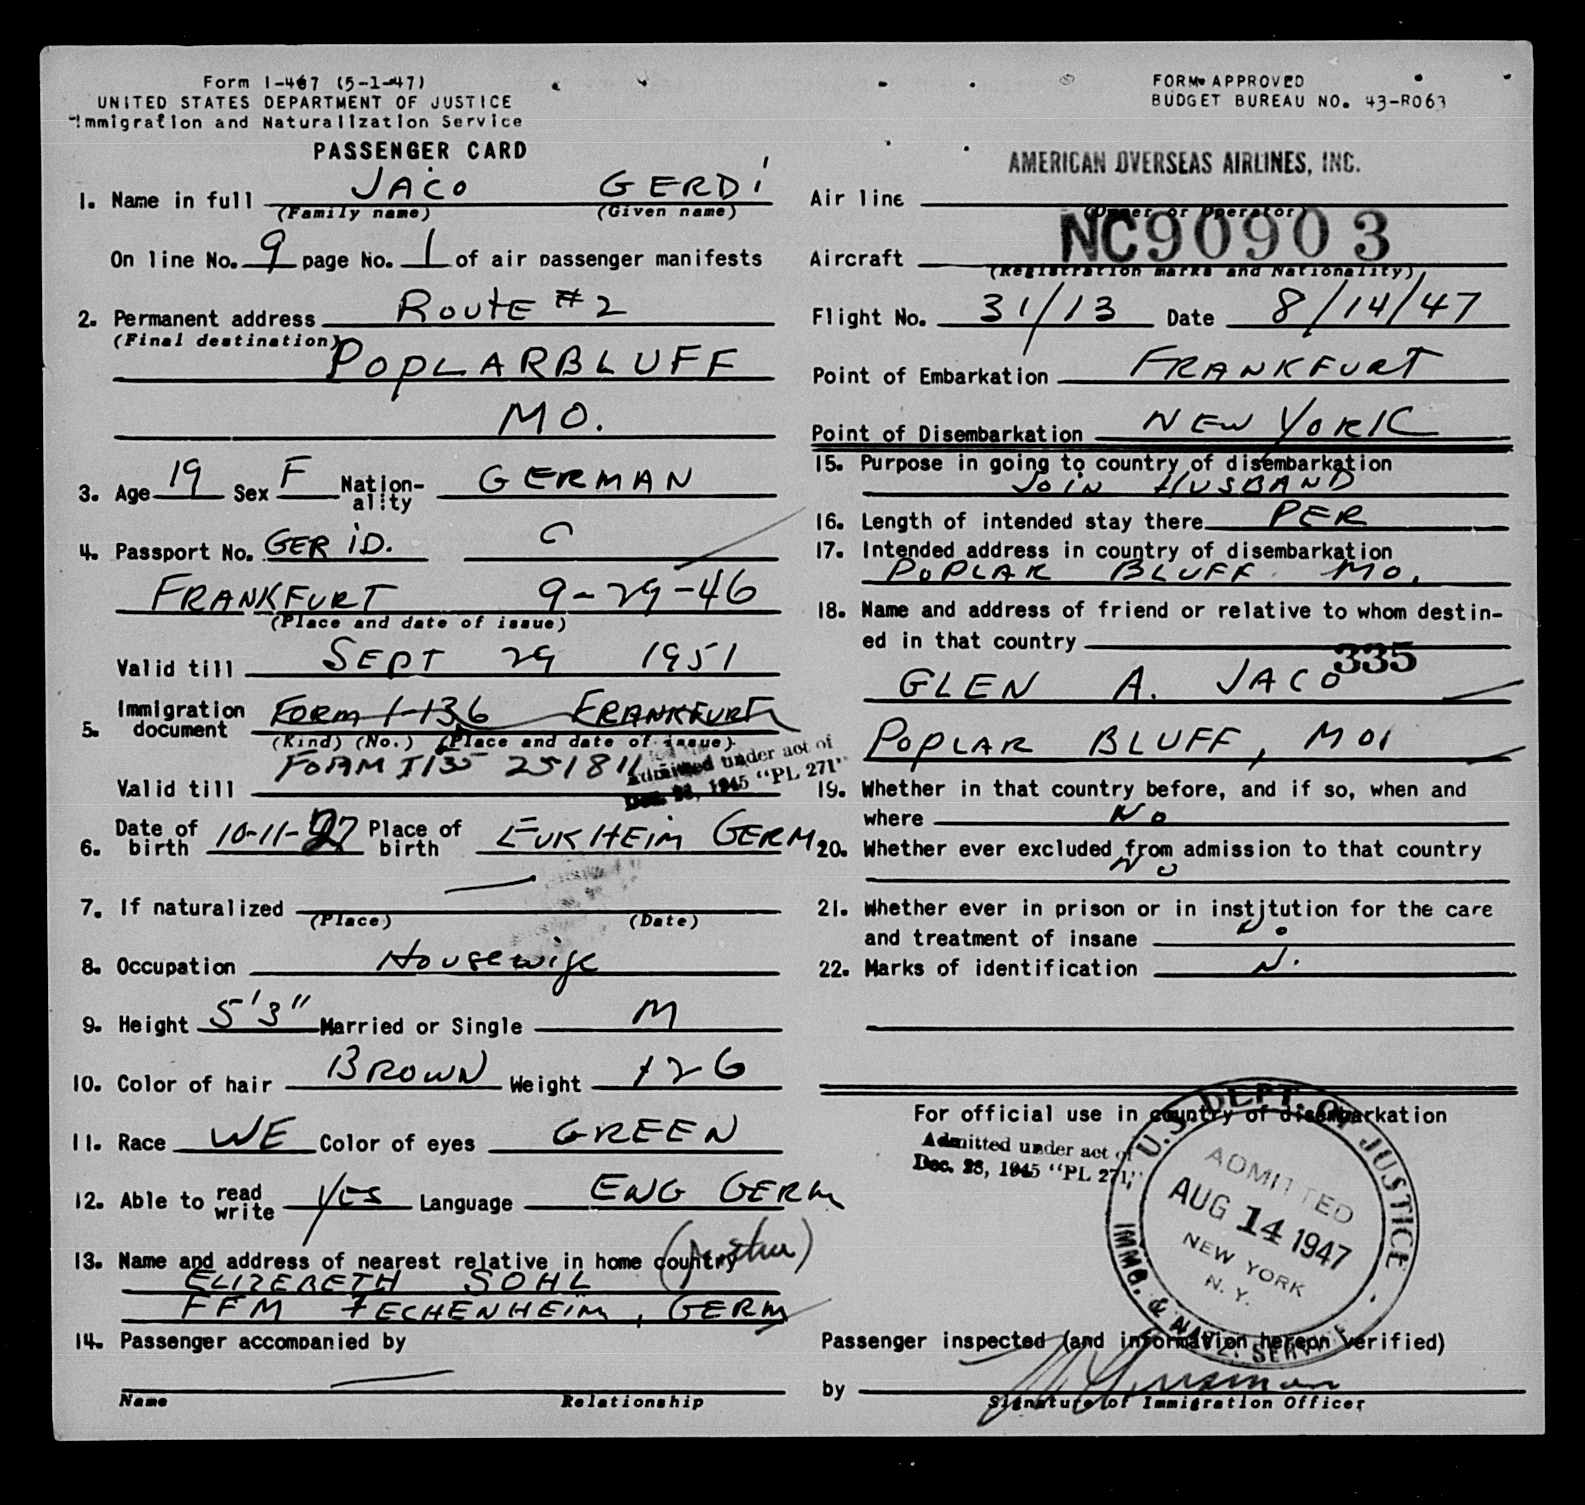 Form I-467 (5-1-47)
UNITED STATES DEPARTMENT OF JUSTICE
Immigration and Naturalization Service
PASSENGER CARD
FORM APPROVED
BUDGET BUREAU NO. 43-R063
1. Name in full JACO GERDI
(Family name) (Given name)
On line No. 9 page No. 1 of air passenger manifests
2. Permanent address ROUTE #2
(Final destination)
POPLARBLUFF
MO.
3. Age 19 Sex F Nation-ality GERMAN
4. Passport No. GER ID. C
FRANKFURT 9-29-46
(Place and date of issue)
Valid till SEPT 29 1951
5. Immigration document FORM I-136 FRANKFURT
(Kind) (No.) (Place and date of issue)
FORM I135 251811
Admitted under act of
Dec. 28, 1945 "PL 271"
Valid till
6. Date of birth 10-11-27 Place of birth EUKHEIM GERM
7. If naturalized
(Place) (Date)
8. Occupation Housewife
9. Height 5'3" Married or Single M
10. Color of hair BROWN Weight 126
11. Race WE Color of eyes GREEN
12. Able to read write YES Language ENG GERM
13. Name and address of nearest relative in home country
ELIZEBETH SOHL
FFM FECHENHEIM, GERM
14. Passenger accompanied by
Name Relationship
AMERICAN OVERSEAS AIRLINES, INC.
Air line
(Owner or Operator)
Aircraft NC90903
(Registration marks and Nationality)
Flight No. 31/13 Date 8/14/47
Point of Embarkation FRANKFURT
Point of Disembarkation NEW YORK
15. Purpose in going to country of disembarkation
JOIN HUSBAND
16. Length of intended stay there PER
17. Intended address in country of disembarkation
POPLAR BLUFF MO.
18. Name and address of friend or relative to whom destin-
ed in that country
335
GLEN A. JACO
POPLAR BLUFF, MO
19. Whether in that country before, and if so, when and
where No
20. Whether ever excluded from admission to that country
No
21. Whether ever in prison or in institution for the care
and treatment of insane No
22. Marks of identification N.
For official use in country of disembarkation
Admitted under act of
Dec. 28, 1945 "PL 271"
U.S. DEPT. OF JUSTICE
ADMITTED
AUG 14 1947
NEW YORK
N. Y.
IMMG. & NATZ. SERVICE
Passenger inspected (and information hereon verified)
by
Signature of Immigration Officer